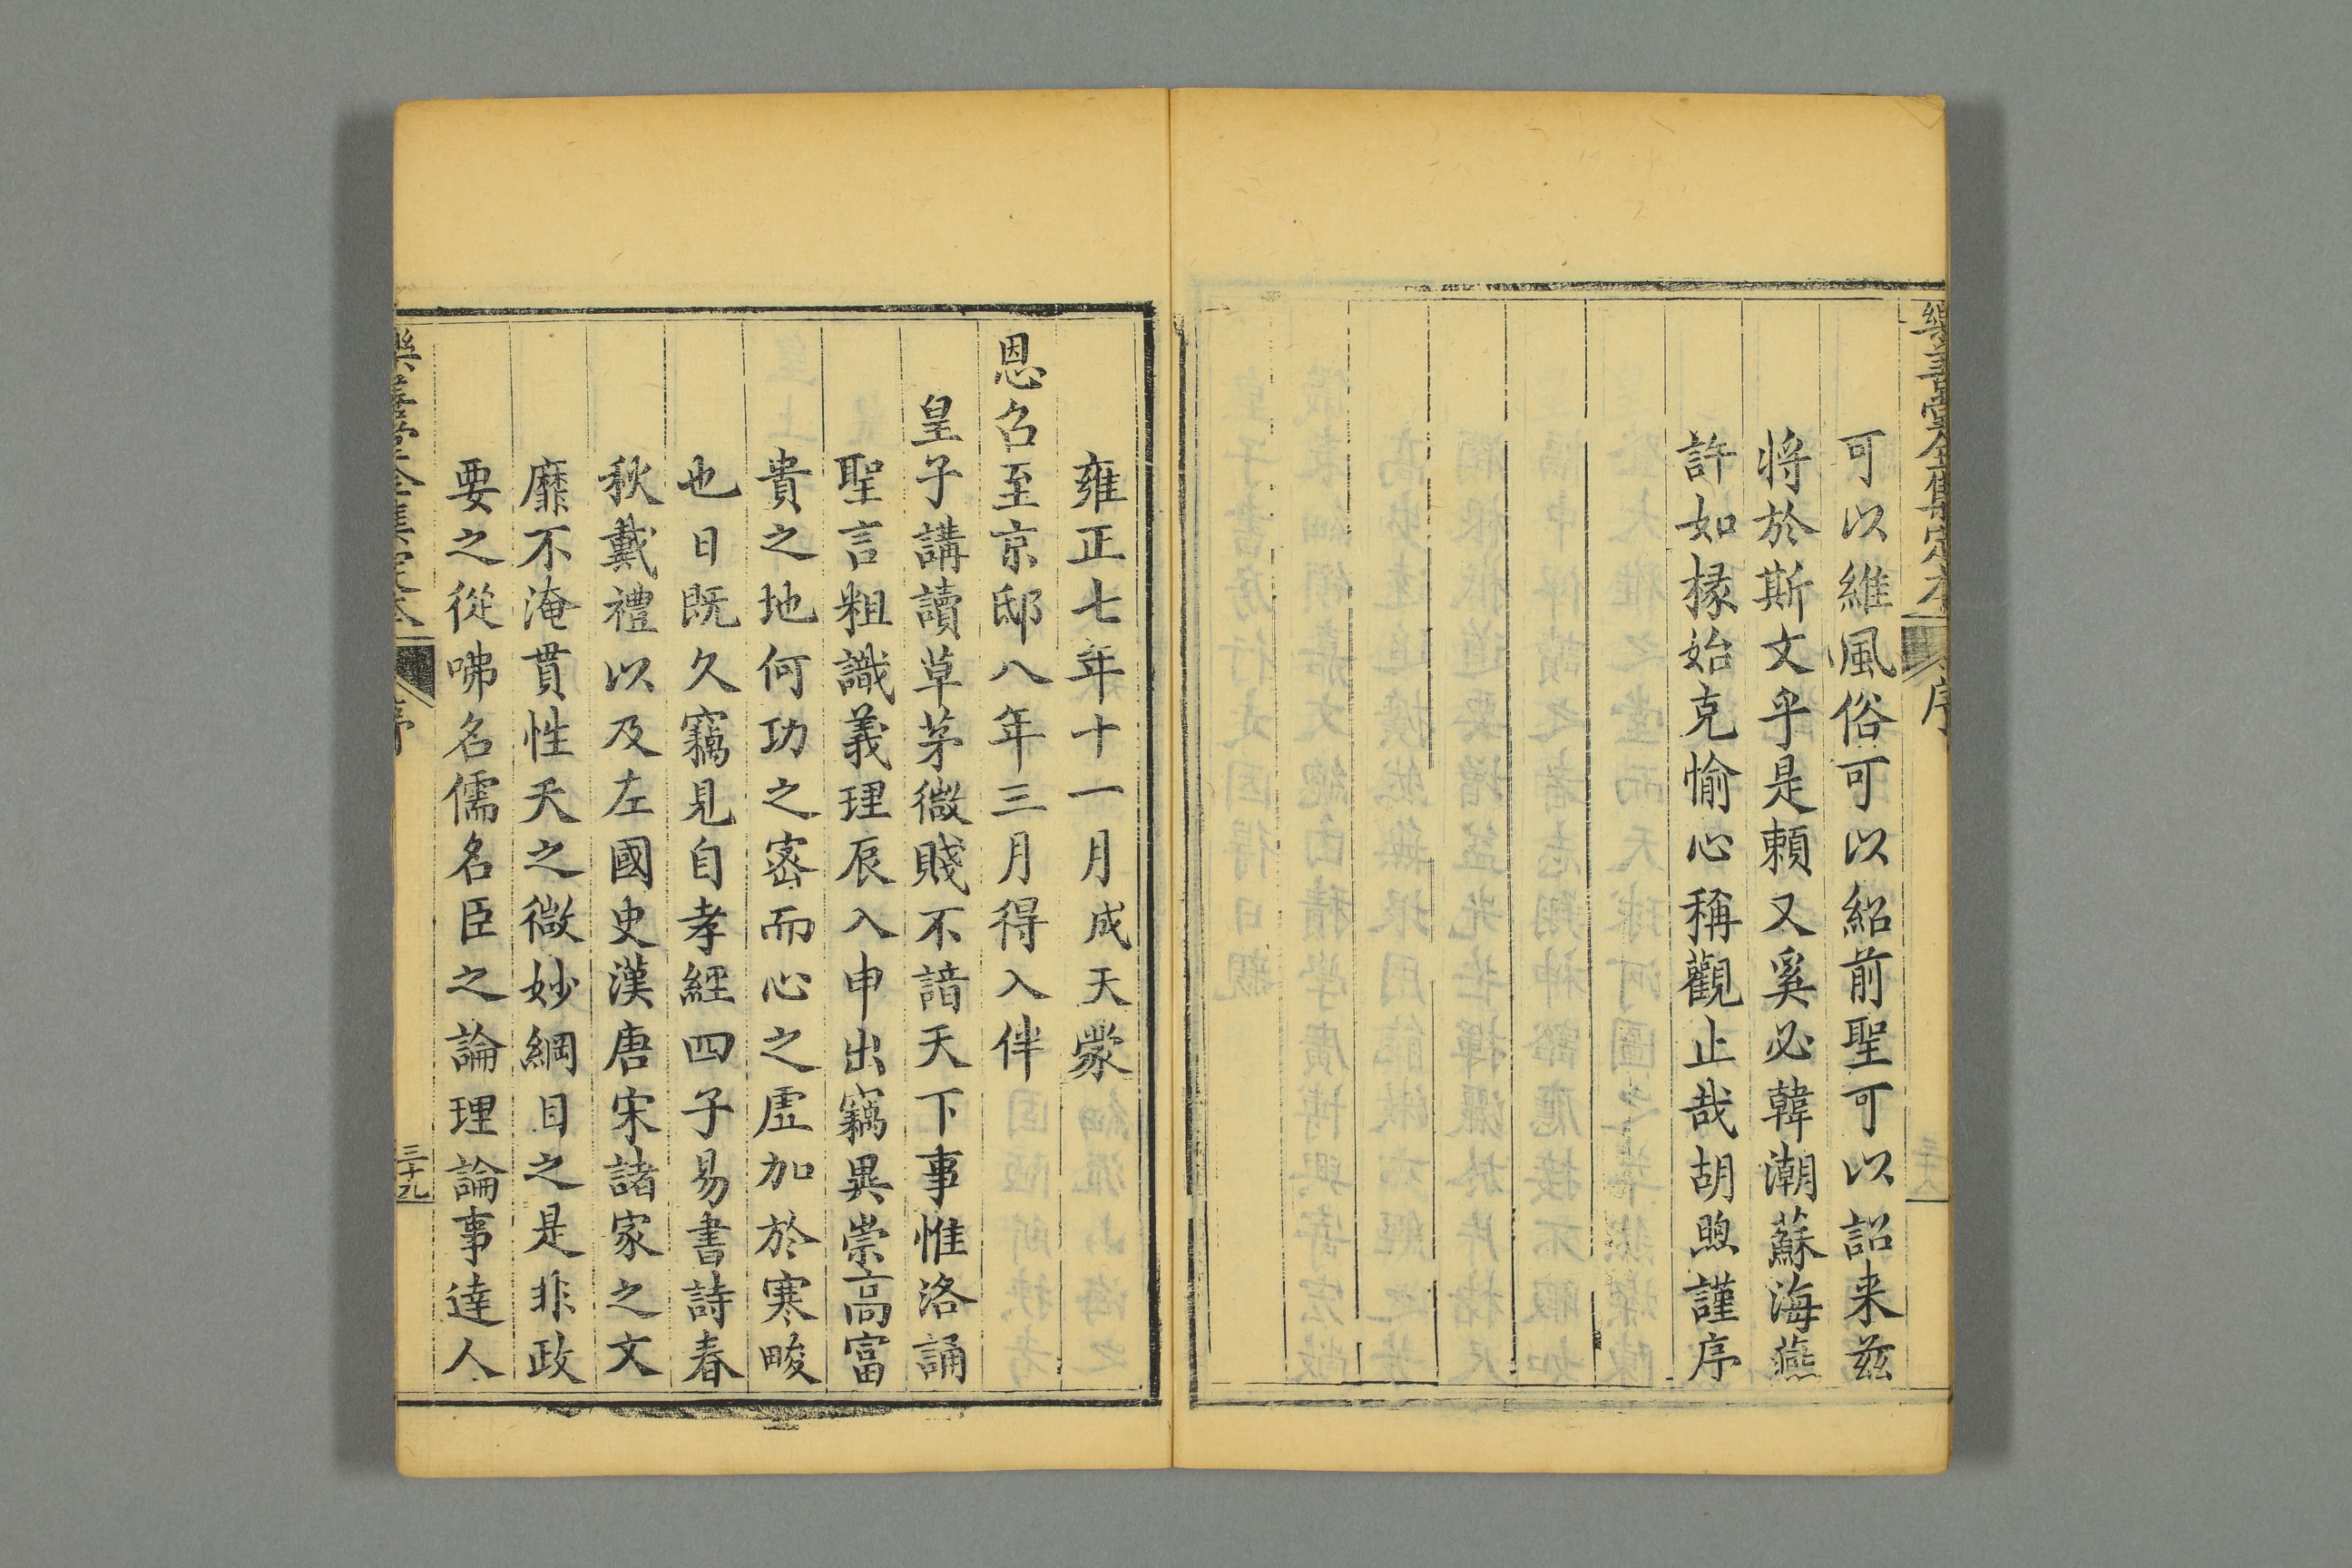 樂善堂全集定本
序
三十八
可以維風俗可以紹前聖可以詔来茲
將於斯文乎是賴又奚必韓潮蘇海燕
許如椽始克愉心稱觀止哉胡煦謹序
雍正七年十一月成天蒙
恩召至京邸八年三月得入伴
皇子講讀草茅微賤不諳天下事惟洛誦
聖言粗識義理辰入申出竊異崇高富
貴之地何功之宻而心之虛加於寒畯
也日既久竊見自孝經四子易書詩春
秋戴禮以及左國史漢唐宋諸家之文
靡不淹貫性天之微妙綱目之是非政
要之從咈名儒名臣之論理論事達人
樂善堂全集定本
序
三十九